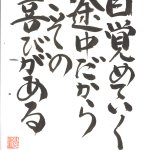 目覚めていく
途中だから
こその
喜びがある